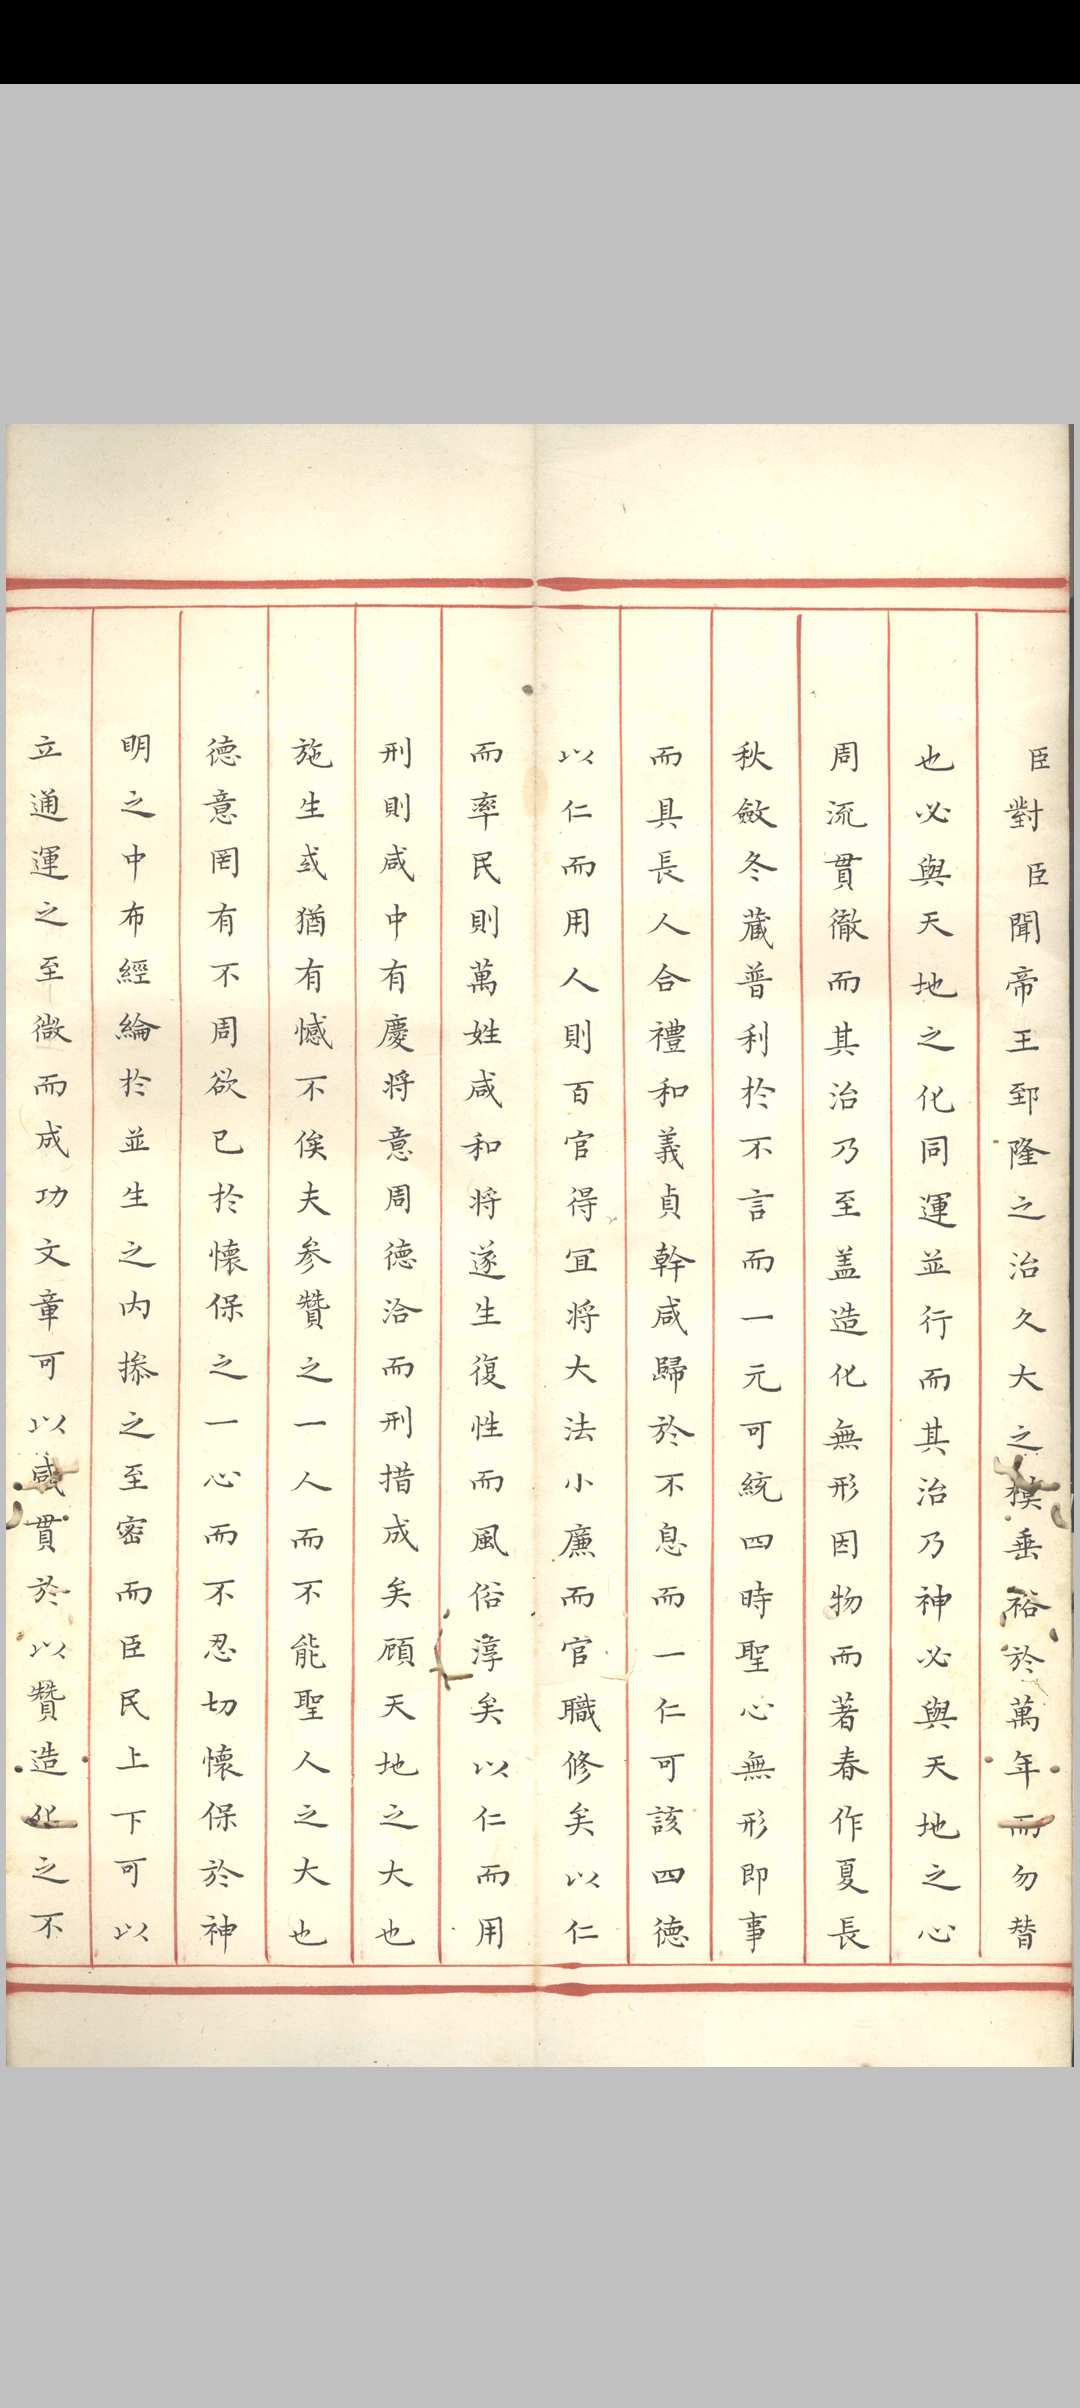 臣對臣聞帝王郅隆之治久大之模垂裕於萬年而勿替
也必與天地之化同運並行而其治乃神必與天地之心
周流貫徹而其治乃至盖造化無形因物而著春作夏長
秋斂冬藏普利於不言而一元可統四時聖心無形即事
而具長人合禮和義貞幹咸歸於不息而一仁可該四德
以仁而用人則百官得冝將大法小廉而官職修矣以仁
而率民則萬姓咸和將遂生復性而風俗淳矣以仁而用
刑則咸中有慶將意周德洽而刑措成矣顧天地之大也
施生或猶有憾不俟夫參贊之一人而不能聖人之大也
德意罔有不周欲已於懷保之一心而不忍切懷保於神
明之中布經綸於並生之内操之至密而臣民上下可以
立通運之至微而成功文章可以咸貫於以贊造化之不